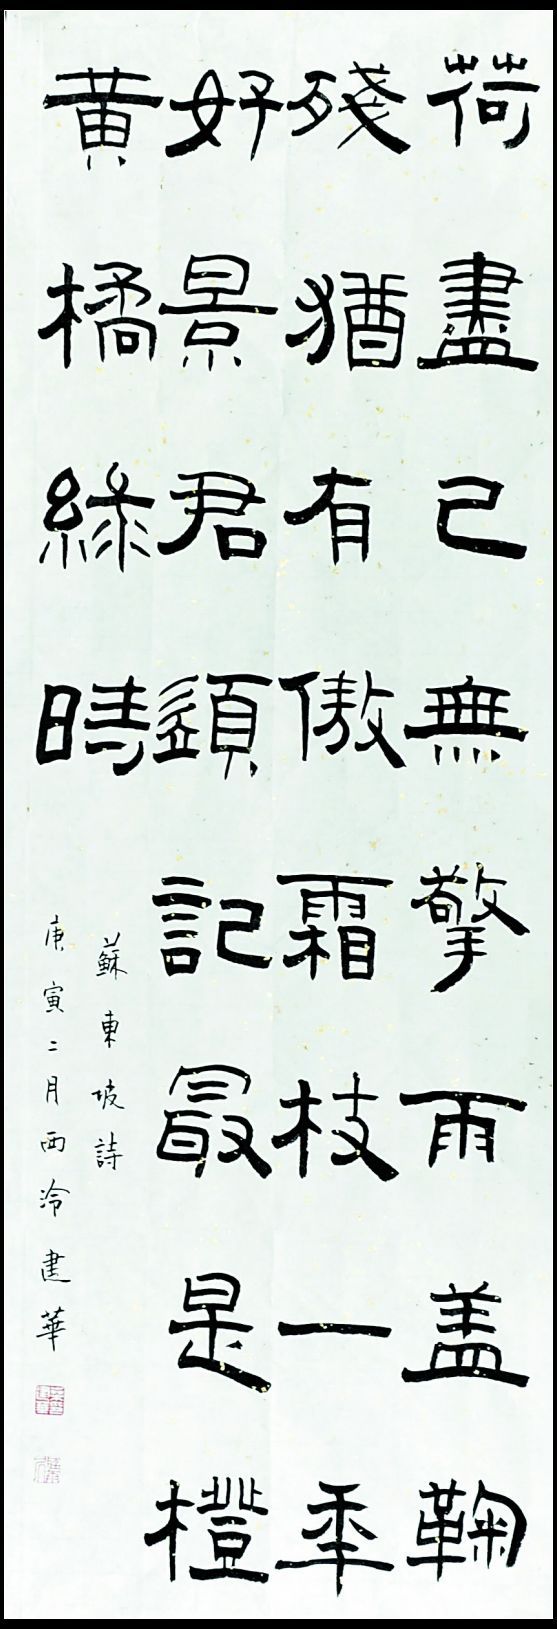 荷盡已無擎雨盖鞠
殘猶有傲霜枝一年
好景君須記最是橙
黄橘緑時
蘇東坡詩
庚寅二月西泠建華